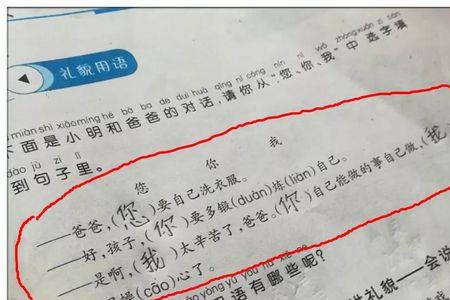 礼貌用语
miàn shì xiǎo míng hé bà ba de duì huà qǐng nǐ cóng nín nǐ wǒ zhōng xuǎn zì tián
下面是小明和爸爸的对话,请你从“您、你、我”中选字填
dào jù zi lǐ
到句子里。
您 你 我
——爸爸,(您)要自己洗衣服。
——好,孩子,(你)要多锻(duàn)炼(liàn)自己。
——是啊,(我)太辛苦了,爸爸。(你)自己能做的事自己做,(我
(cāo)心了。
用语有哪些呢?
礼貌——会说